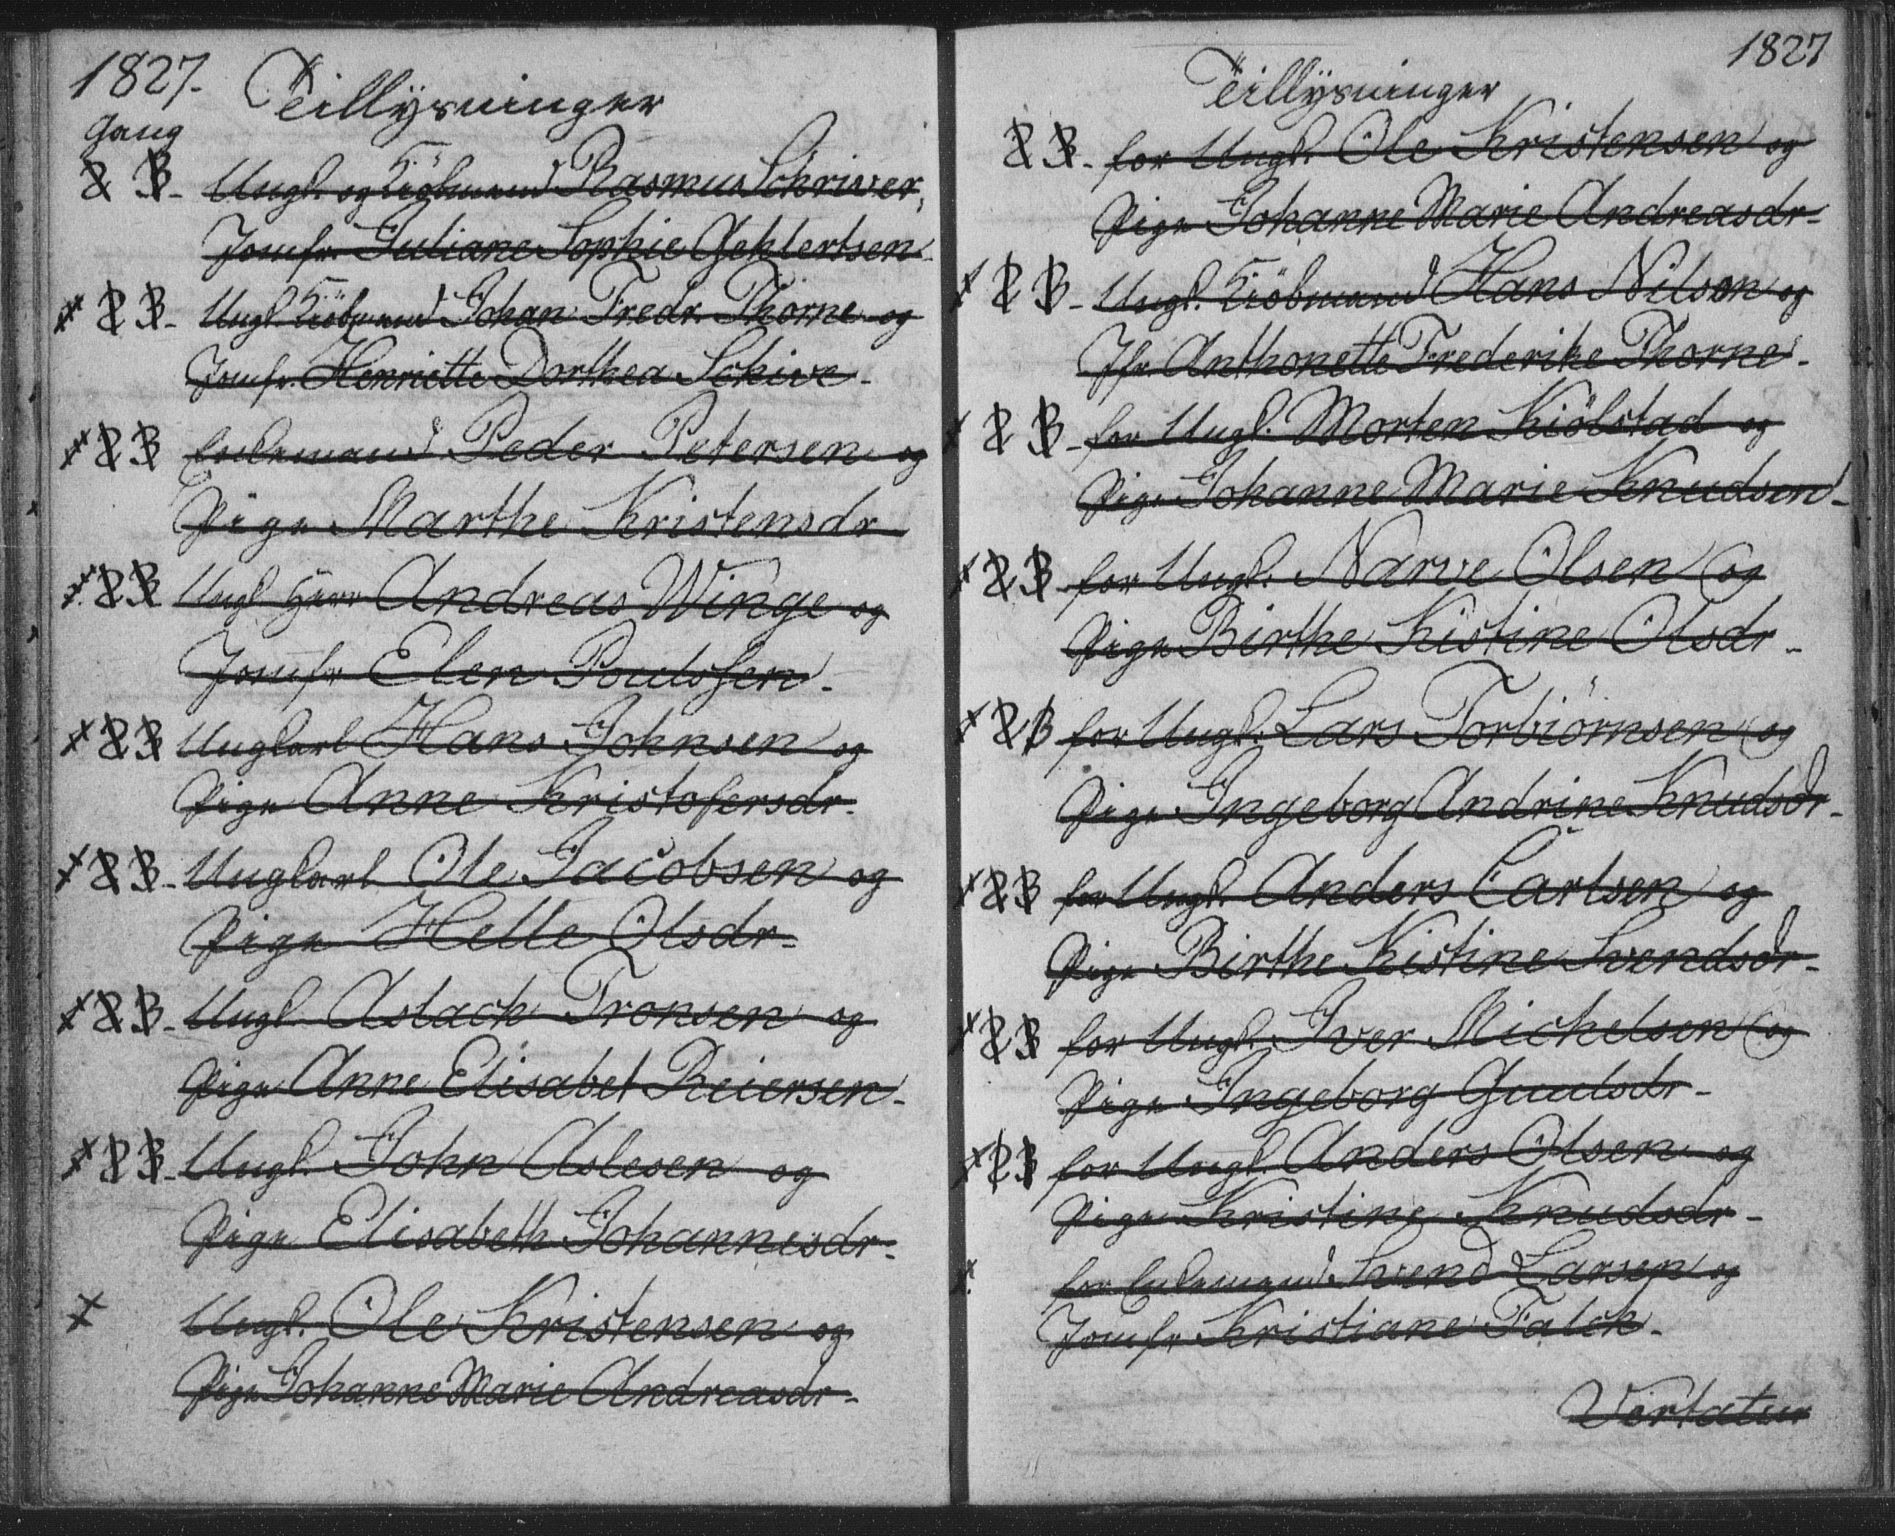 1827.
Tillysninger
Gang
2 3. Ungk. og Kiöbmand Rasmus Schriver,
Jomfr. Juliane Sophie Gehlertsen.
2 3. Ungk. Kiöbmand Johan Fredr. Thorne og
Jomfr. Henriette Dorthea Schive.
2 3 Enkemand Peder Petersen og
Pige Marthe Kristensdr
2 3 Ungk. Herr Andreas Winge og
Jomfr Elen Poulsen.
2 3 Ungkarl Hans Johnsen og
Pige Anne Kristofersdr.
2 3. Ungkarl Ole Jacobsen og
Pige Helle Olsdr.
2 3. Ungk. Aslack Tronsen og
Pige Anne Elisabet Reiersen.
2 3. Ungk. John Aslesen og
Pige Elisabeth Johannesdr.
Ungk. Ole Kristensen og
Pige Johanne Marie Andreasdr.
1827
Tillysninger
2 3. for Ungk. Ole Kristensen og
Pige Johanne Marie Andreasdr.
2 3. Ungk. Kiöbmand Hans Nilson og
Jfr. Anthonette Frederike Thorne.
2 3. for Ungk. Morten Kiölstad og
Pige Johanne Marie Knudsen.
2 3. for Ungk. Narve Olsen og
Pige Birthe Kistine Olsdr.
2 3 for Ungk. Lars Torbiörnsen og
Pige Ingeborg Andrine Knudsdr.
2 3 for Ungk. Anders Carlsen og
Pige Birthe Kistine Svendsdr.
2 3 for Ungk. Iver Michelsen og
Pige Ingeborg
2 3 for Ungk. Anders Olsen og
Pige Kristine Knudsdr.
for Enkemand Svend Larsen og
Jomfr. Kristiane Falck.
Vertatur